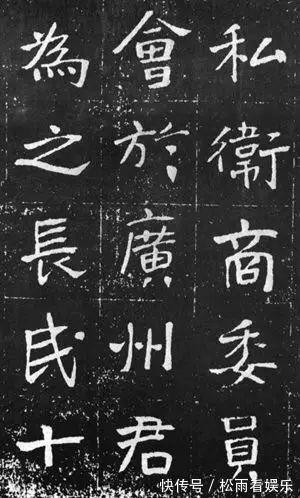 私衛商委員
會於廣州君
為之長民十
快传号 / 松雨看娱乐